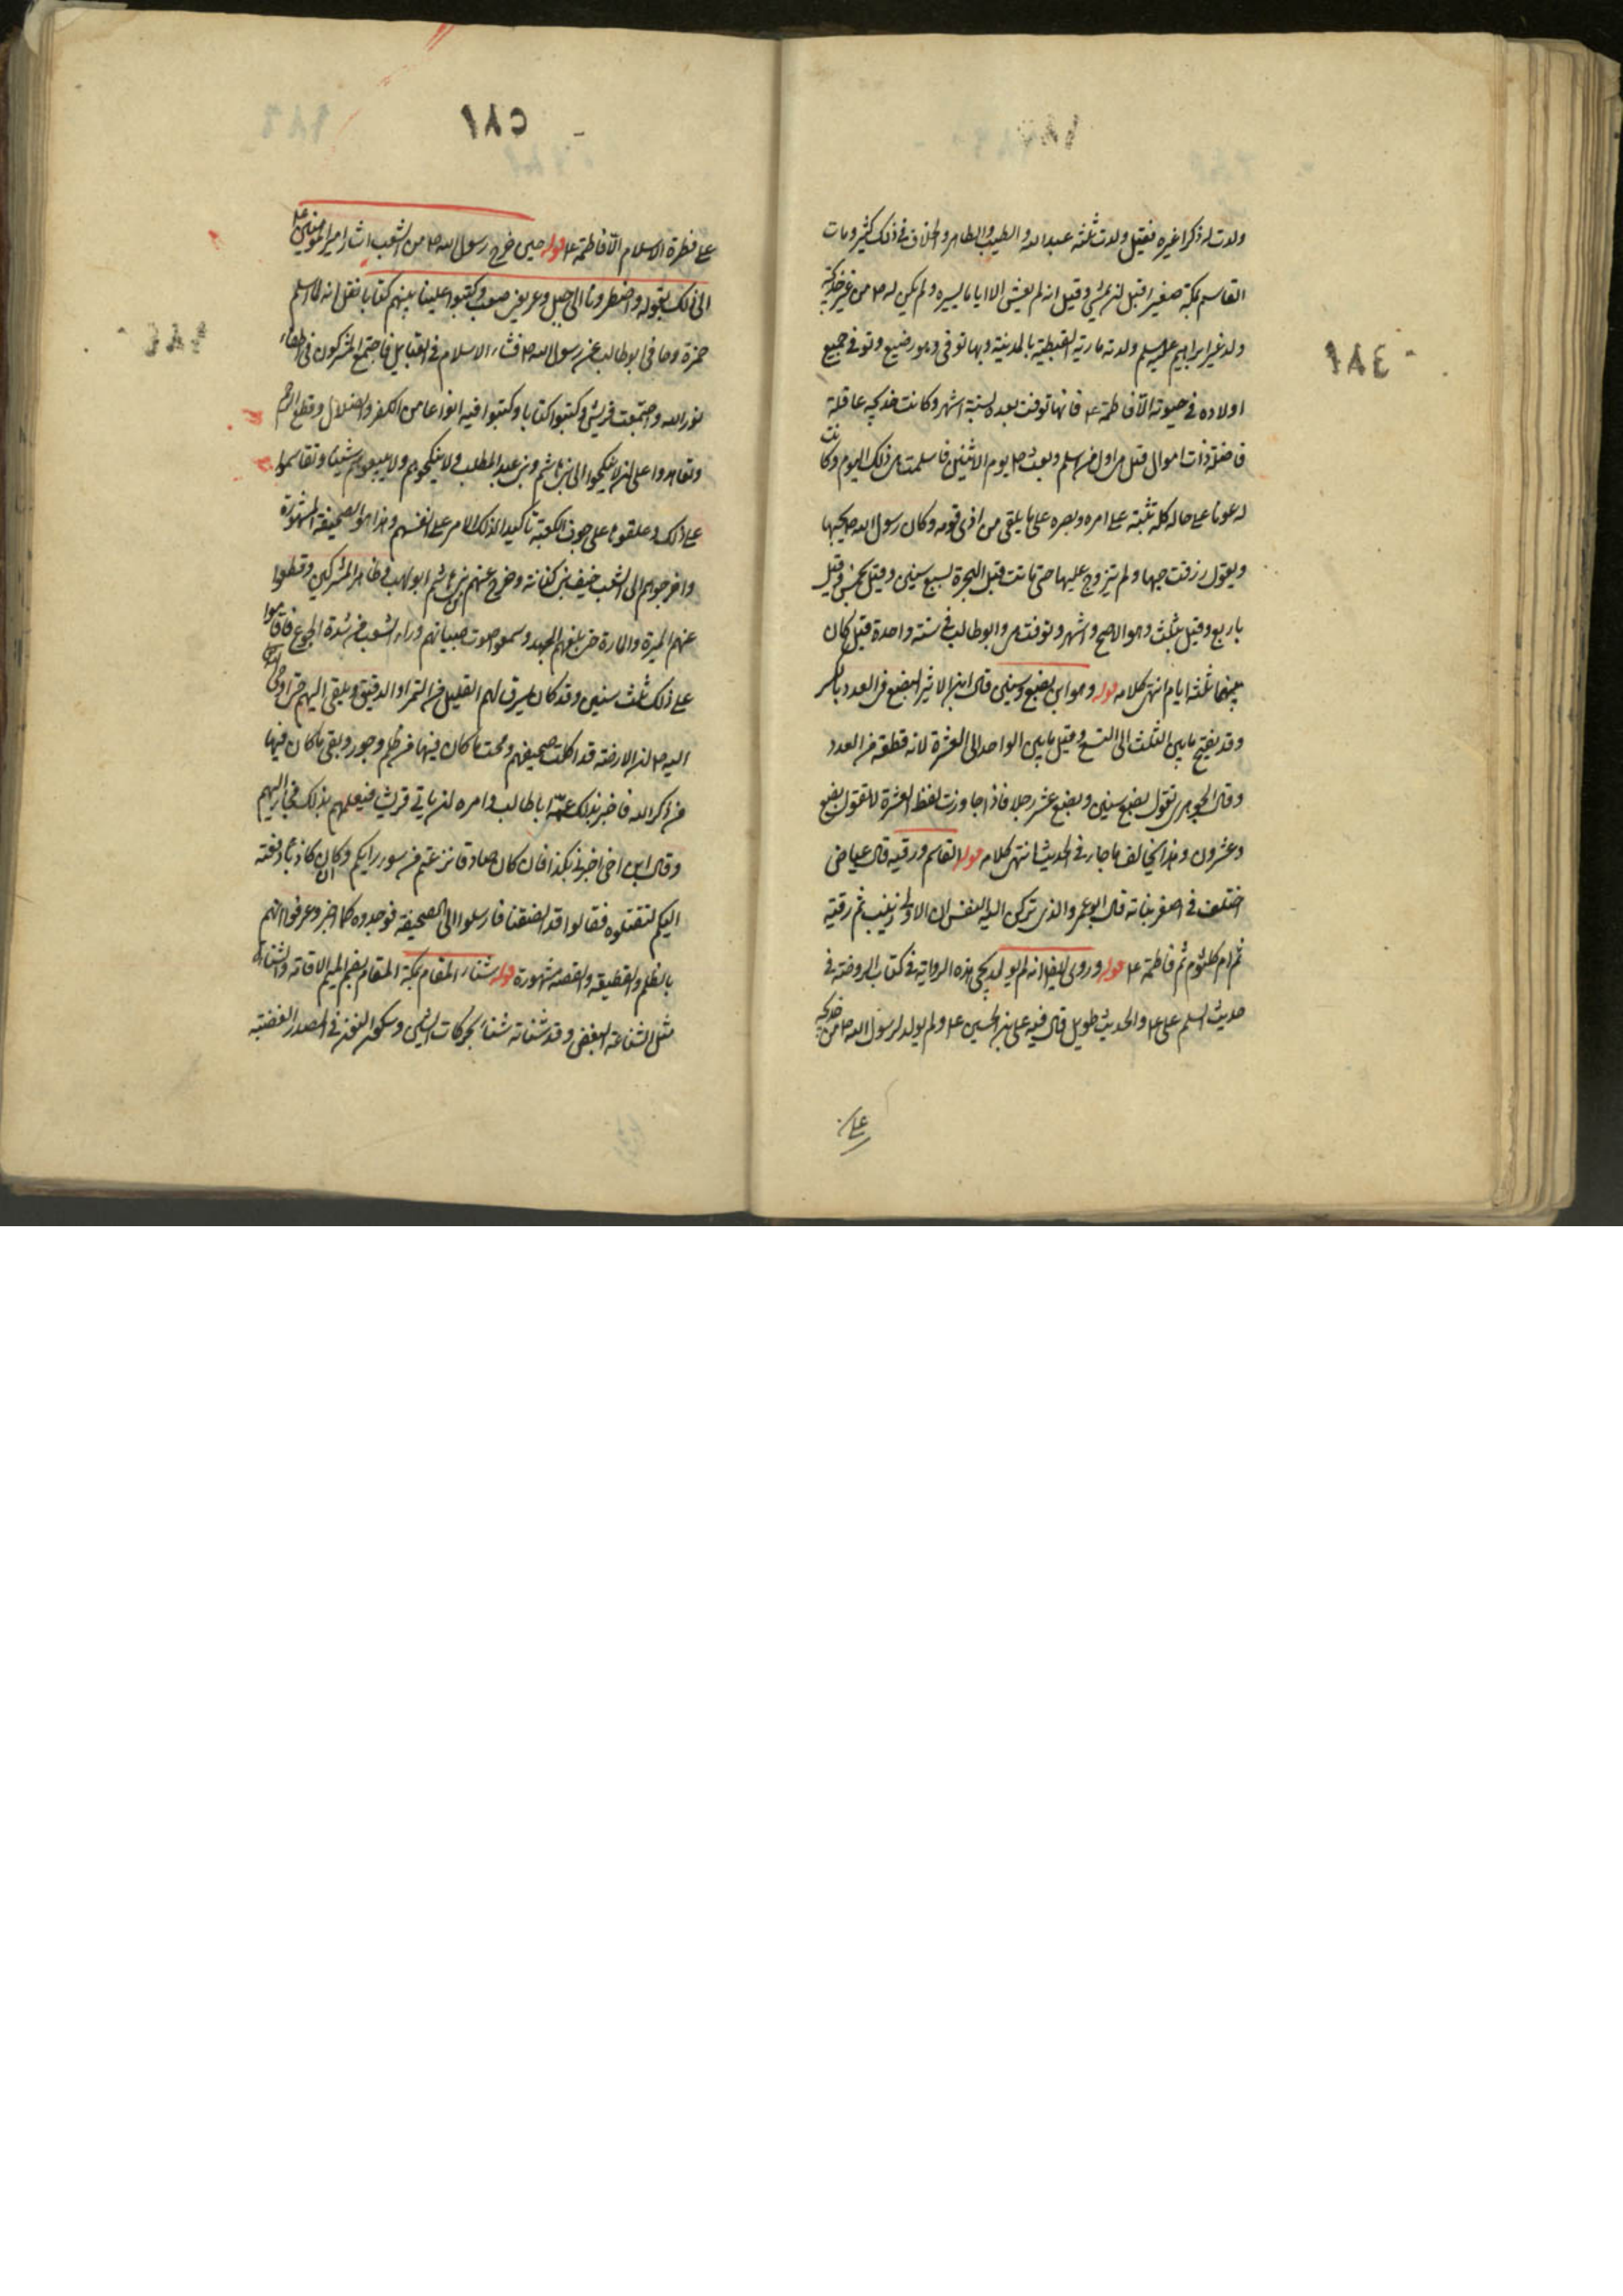 ١٨٤
ولدت له ذكرا غيره فقيل ولدت ثلثة عبد الله والطيب والطاهر والخلاف في ذلك كثير ومات
القاسم بمكة صغيرا قبل ان يمشي وقيل انه لم يعش الا اياما يسيره ولم يكن له ص من غير خديجة
ولد غير ابراهيم عليه السلم ولدته مارية القبطية بالمدينة وبها توفي وهو رضيع وتوفي جميع
اولاده في حيوته الا فاطمة ع فانها توفت بعده لستة اشهر وكانت خديجه عاقلة
فاضلة ذات اموال قيل هي اول من اسلم وبعث ص يوم الاثنين فاسلمت هي ذلك اليوم وكانت
له عونا على حاله كله تثبته على امره وبصره على ما يلقى من اذى قومه وكان رسول الله ص يحبها
ويقول رزقت حبها ولم يتزوج عليها حتى ماتت قبل الهجرة لسبع سنين وقيل بخمس وقيل
باربع وقيل بثلث وهو الاصح واشهر وتوفت هي وابو طالب في سنة واحدة قيل كان
بينهما ثلثه ايام انتهى كلامه قوله وهو ابن بضع وسنين قال ابن الاثير البضع في العدد بالكسر
وقد يفتح ما بين الثلث الى التسع وقيل ما بين الواحد الى العشرة لانه قطعة من العدد
وقال الجوهري تقول بضع سنين وبضع عشر رجلا فاذا جاوزت لفظ العشرة لا تقول بضع
وعشرون وهذا يخالف ما جاء في الحديث انتهى كلامه قوله القاسم ورقيه قال عياض
اختلف في اصغر بناته قال ابو عمر والذي تركن اليه النفس ان الاولى زينب ثم رقية
ثم ام كلثوم ثم فاطمة ع قوله وروى ايضا انه لم يولد يجئ هذه الرواية في كتاب الروضة في
حديث اسلم علي ع والحديث طويل قال فيه علي بن الحسين ع ولم يولد لرسول الله ص من خديجة
على
١٨٥
على فطرة الاسلام الا فاطمة ع قوله حين خرج رسول الله ص من الشعب اشار امير المؤمنين ع
الى ذلك بقوله واضطرونا الى جبل وعر يعز صعب وكتبوا علينا بينهم كتابا نقل انه لما اسلم
حمزة وحامى ابو طالب عن رسول الله ص فشا الاسلام في القبايل فاجتمع المشركون في اطفاء
نور الله واجتمعت قريش وكتبوا كتابا وكتبوا فيه انواعا من الكفر والضلال وقطع الرحم
وتعاهدوا على ان لا ينكحوا الى بني هاشم وبني عبد المطلب ولا ينكحوهم ولا يبيعوهم شيئا وتقاسموا
على ذلك وعلقوها على جوف الكعبة تاكيدا لذلك الامر على انفسهم وهذا هو الصحيفة المشهورة
واخرجوهم الى الشعب خيف بني كنانة وخرج عنهم من بني هاشم ابو لهب وظاهر المشركين وقطعوا
عنهم الميرة والمارة حتى بلغهم الجهد وسمعوا صوت صبيانهم وراء الشعب من شدة الجوع فاقاموا
على ذلك ثلث سنين وقد كان يسرق لهم القليل من التمر او الدقيق ويلقى اليهم حتى اوحى الله
اليه ص ان الارضة قد اكلت صحيفتهم ومحت ما كان فيها من ظلم وجور وبقى ما كان فيها
من ذكر الله فاخبر بذلك عمه ابا طالب وامره ان ياتي قريش فيعلمهم بذلك فجاء اليهم
وقال ابن اخي اخبرني بكذا فان كان صادقا نزعتم من سوء رايكم وان كان كاذبا دفعته
اليكم لتقتلوه فقالوا قد انصفتنا فارسلوا الى الصحيفة فوجدوه كما اخبر وعرفوا انهم
بالظلم والقطيعة والقصه مشهورة قوله شناء المقام بمكة المقام بضم الميم الاقامة والشناءة
مثل الشناعة البغض وقد شناته شنأ بحركات الشين وسكون النون في المصدر ابغضته